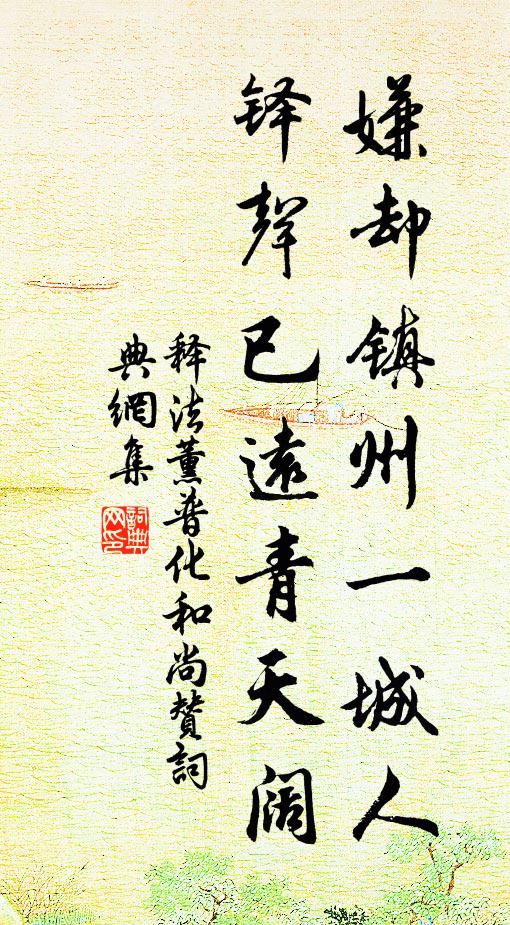 嫌却镇州一城人
铎聲已遠青天阔
释法薰普化和尚赞詞
典網集
詞典网印